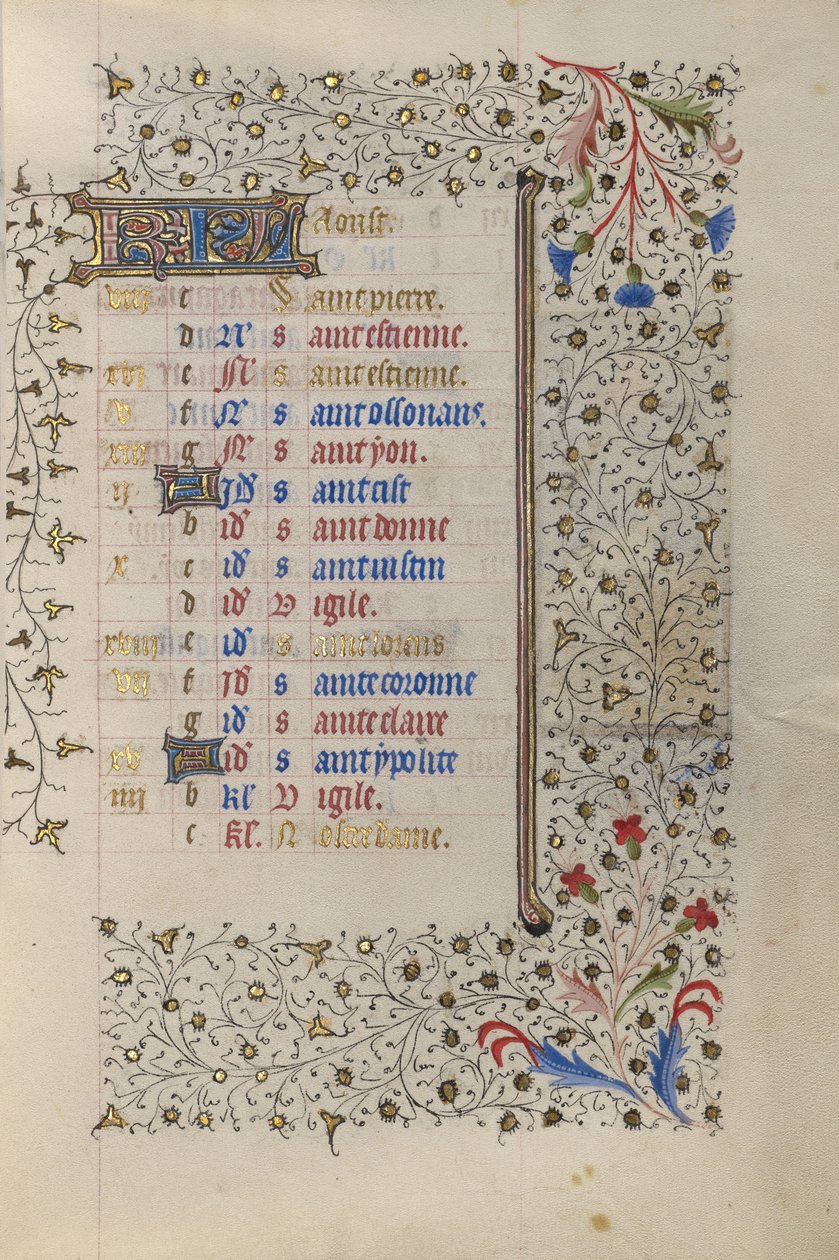 KL Aoust.
viii c Saint pierre.
d N Saint estienne.
xvi e N Saint estienne.
v f N Saint ossonans.
xiii g N Saint yon.
ii A id Saint cist
b id Saint donne
x c id Saint iustin
d id Vigile.
xviii e id Saint lorens
vii f id Sainte coronne
g id Sainte claire
xv A id Saint ypolite
iiii b kl Vigile.
c kl. Nostre dame.